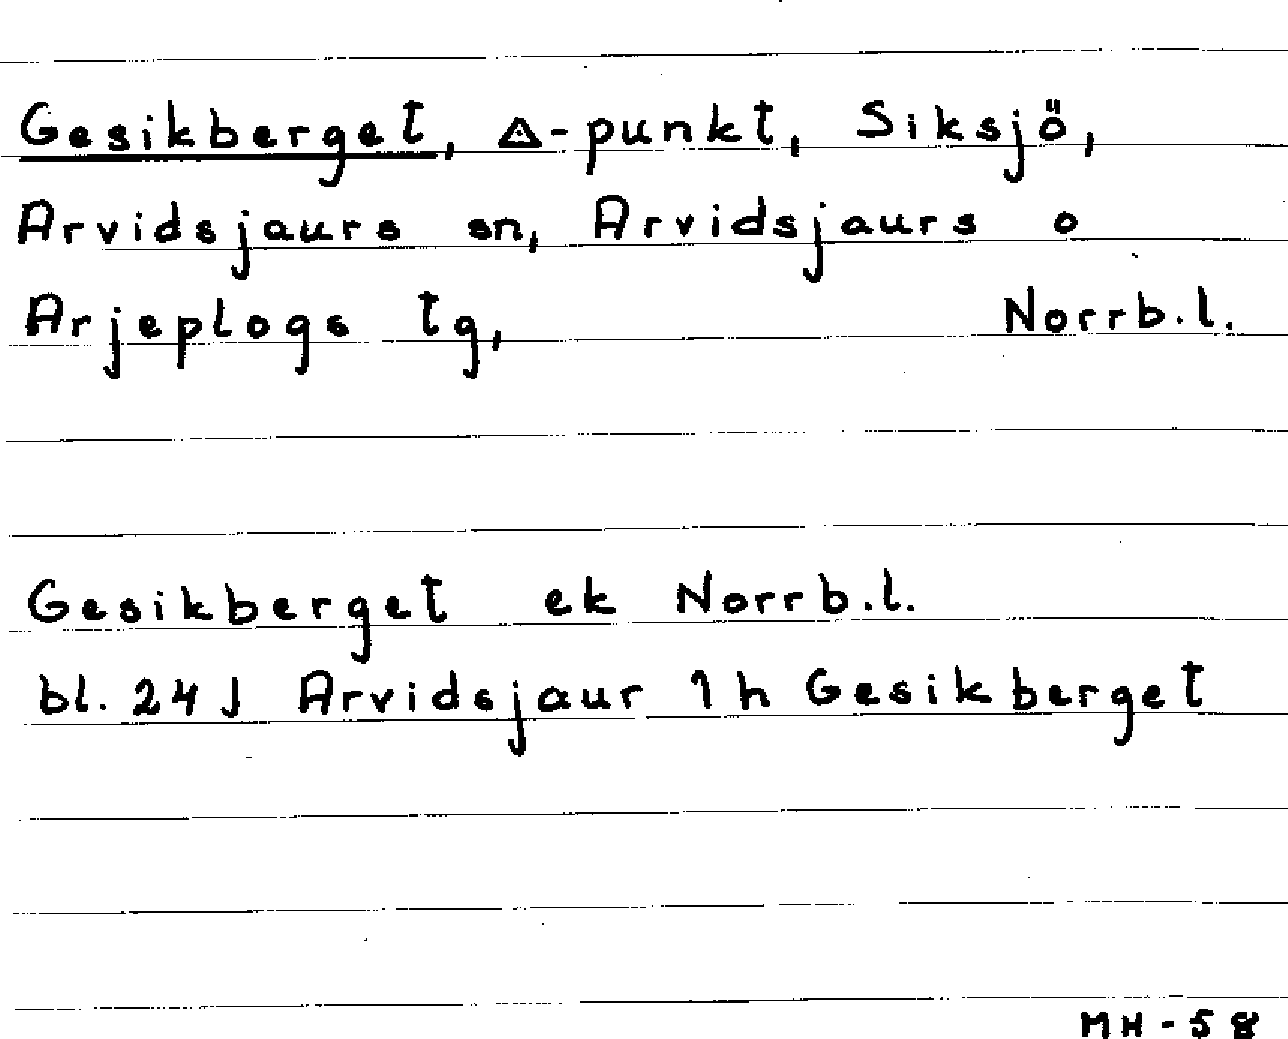 Gesikberget, △-punkt, Siksjö,
Arvidsjaurs sn, Arvidsjaurs o
Arjeplogs tg, Norrb.l.
Gesikberget ek Norrb.l.
bl. 24 J Arvidsjaur 1 h Gesikberget
MH-58